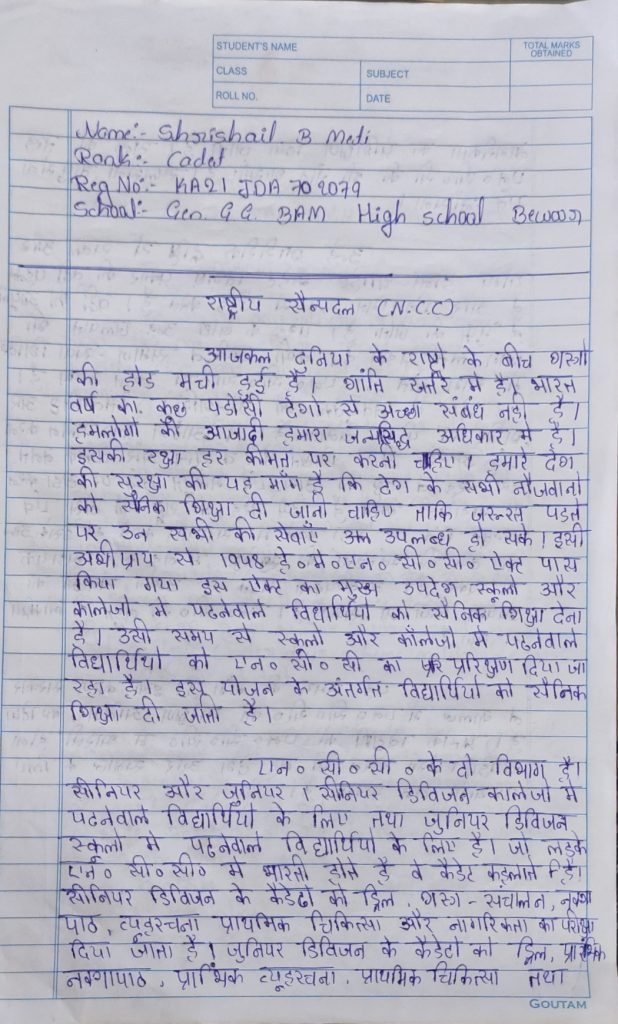 STUDENT'S NAME
TOTAL MARKS OBTAINED
CLASS
SUBJECT
ROLL NO.
DATE
Name:- Shrishail B Meti
Rank:- Cadet
Reg No:- KA21 JDA 702079
School:- Gen G.G. BAM High school Bewoor
राष्ट्रीय सैन्यदल (N.C.C)
आजकल दुनिया के राष्ट्रो के बीच शस्त्रो
की होड मची हुई है। शांति खतरे मे है। भारत
वर्ष का कुछ पडोसी देशो से अच्छा संबंध नही है।
हमलोगो की आजादी हमारा जन्मसिद्ध अधिकार मे है।
इसकी रक्षा हर कीमत पर करनी चाहिए। हमारे देश
की सुरक्षा की यह मांग है कि देश के सभी नौजवानो
को सैनिक शिक्षा दी जानी चाहिए ताकि जरूरत पडते
पर उन सभी की सेवाएँ उपलब्ध हो सके। इसी
अभीप्राय से १९५४ है॰ मे॰ एन॰ सी॰ सी॰ ऐक्ट पास
किया गया इस ऐक्ट का मुख्य उपदेश स्कूलो और
कालेजो मे पढनेवाले विद्यार्थियो को सैनिक शिक्षा देना
है। उसी समय से स्कूलो और कॉलेजो मे पढनेवाले
विद्यार्थियो को एन॰ सी॰ सी का प्ररिक्षण दिया जा
रहा है। इस योजन के अंतर्गत विद्यार्थियो को सैनिक
शिक्षा दी जाती है।
एन॰ सी॰ सी॰ के दो विभाग है।
सीनियर और जुनियर। सीनियर डिविजन कालेजो मे
पढनेवाले विद्यार्थियो के लिए तथा जुनियर डिविजन
स्कूलो मे पढनेवाले विद्यार्थियो के लिए है। जो लडके
एन॰ सी॰ सी॰ मे भारती होते है वे कैडेट कहलाते है।
सीनियर डिविजन के कैडेटो को ड्रिल, शस्त्र-संचालन, नक्शा
पाठ, व्यूहरचना प्राथमिक चिकित्सा और नागरिकता का परीक्षा
दिया जाता है। जुनियर डिविजन के कैडेटो को ड्रिल, प्रारंभिक
नक्शापाठ, प्रारंभिक व्यूहरचना, प्राथमिक चिकित्सा तथा
GOUTAM